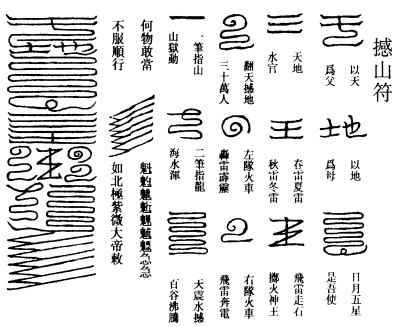 撼山符
以天
爲父
以地
爲母
日月五星
是吾使
天地
水官
春雷夏雷
秋雷冬雷
飛雷走石
擲火神王
翻天撼地
三十萬人
左隊火車
轟雷霹靂
右隊火車
飛雷奔電
一筆指山
山獄動
二筆指龍
海水渾
天震水撼
百谷沸騰
何物敢當
不服順行
魁 急急
如北極紫微大帝敕